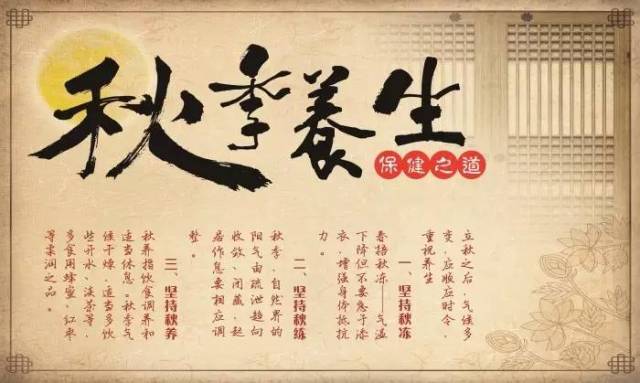 秋季養生
保健之道
立秋之后,气候多
变,应顺应时令,
重视养生
一、坚持秋冻
春捂秋冻——气温
下降但不要急于添
衣,增强身体抵抗
力。
二、坚持秋练
秋季,自然界的
阳气由疏泄趋向
收敛、闭藏,起
居作息要相应调
整。
三、坚持秋养
秋养指饮食调养和
适当休息。秋季气
候干燥,适当多饮
些开水、淡茶等,
多食用蜂蜜、红枣
等柔润之品。